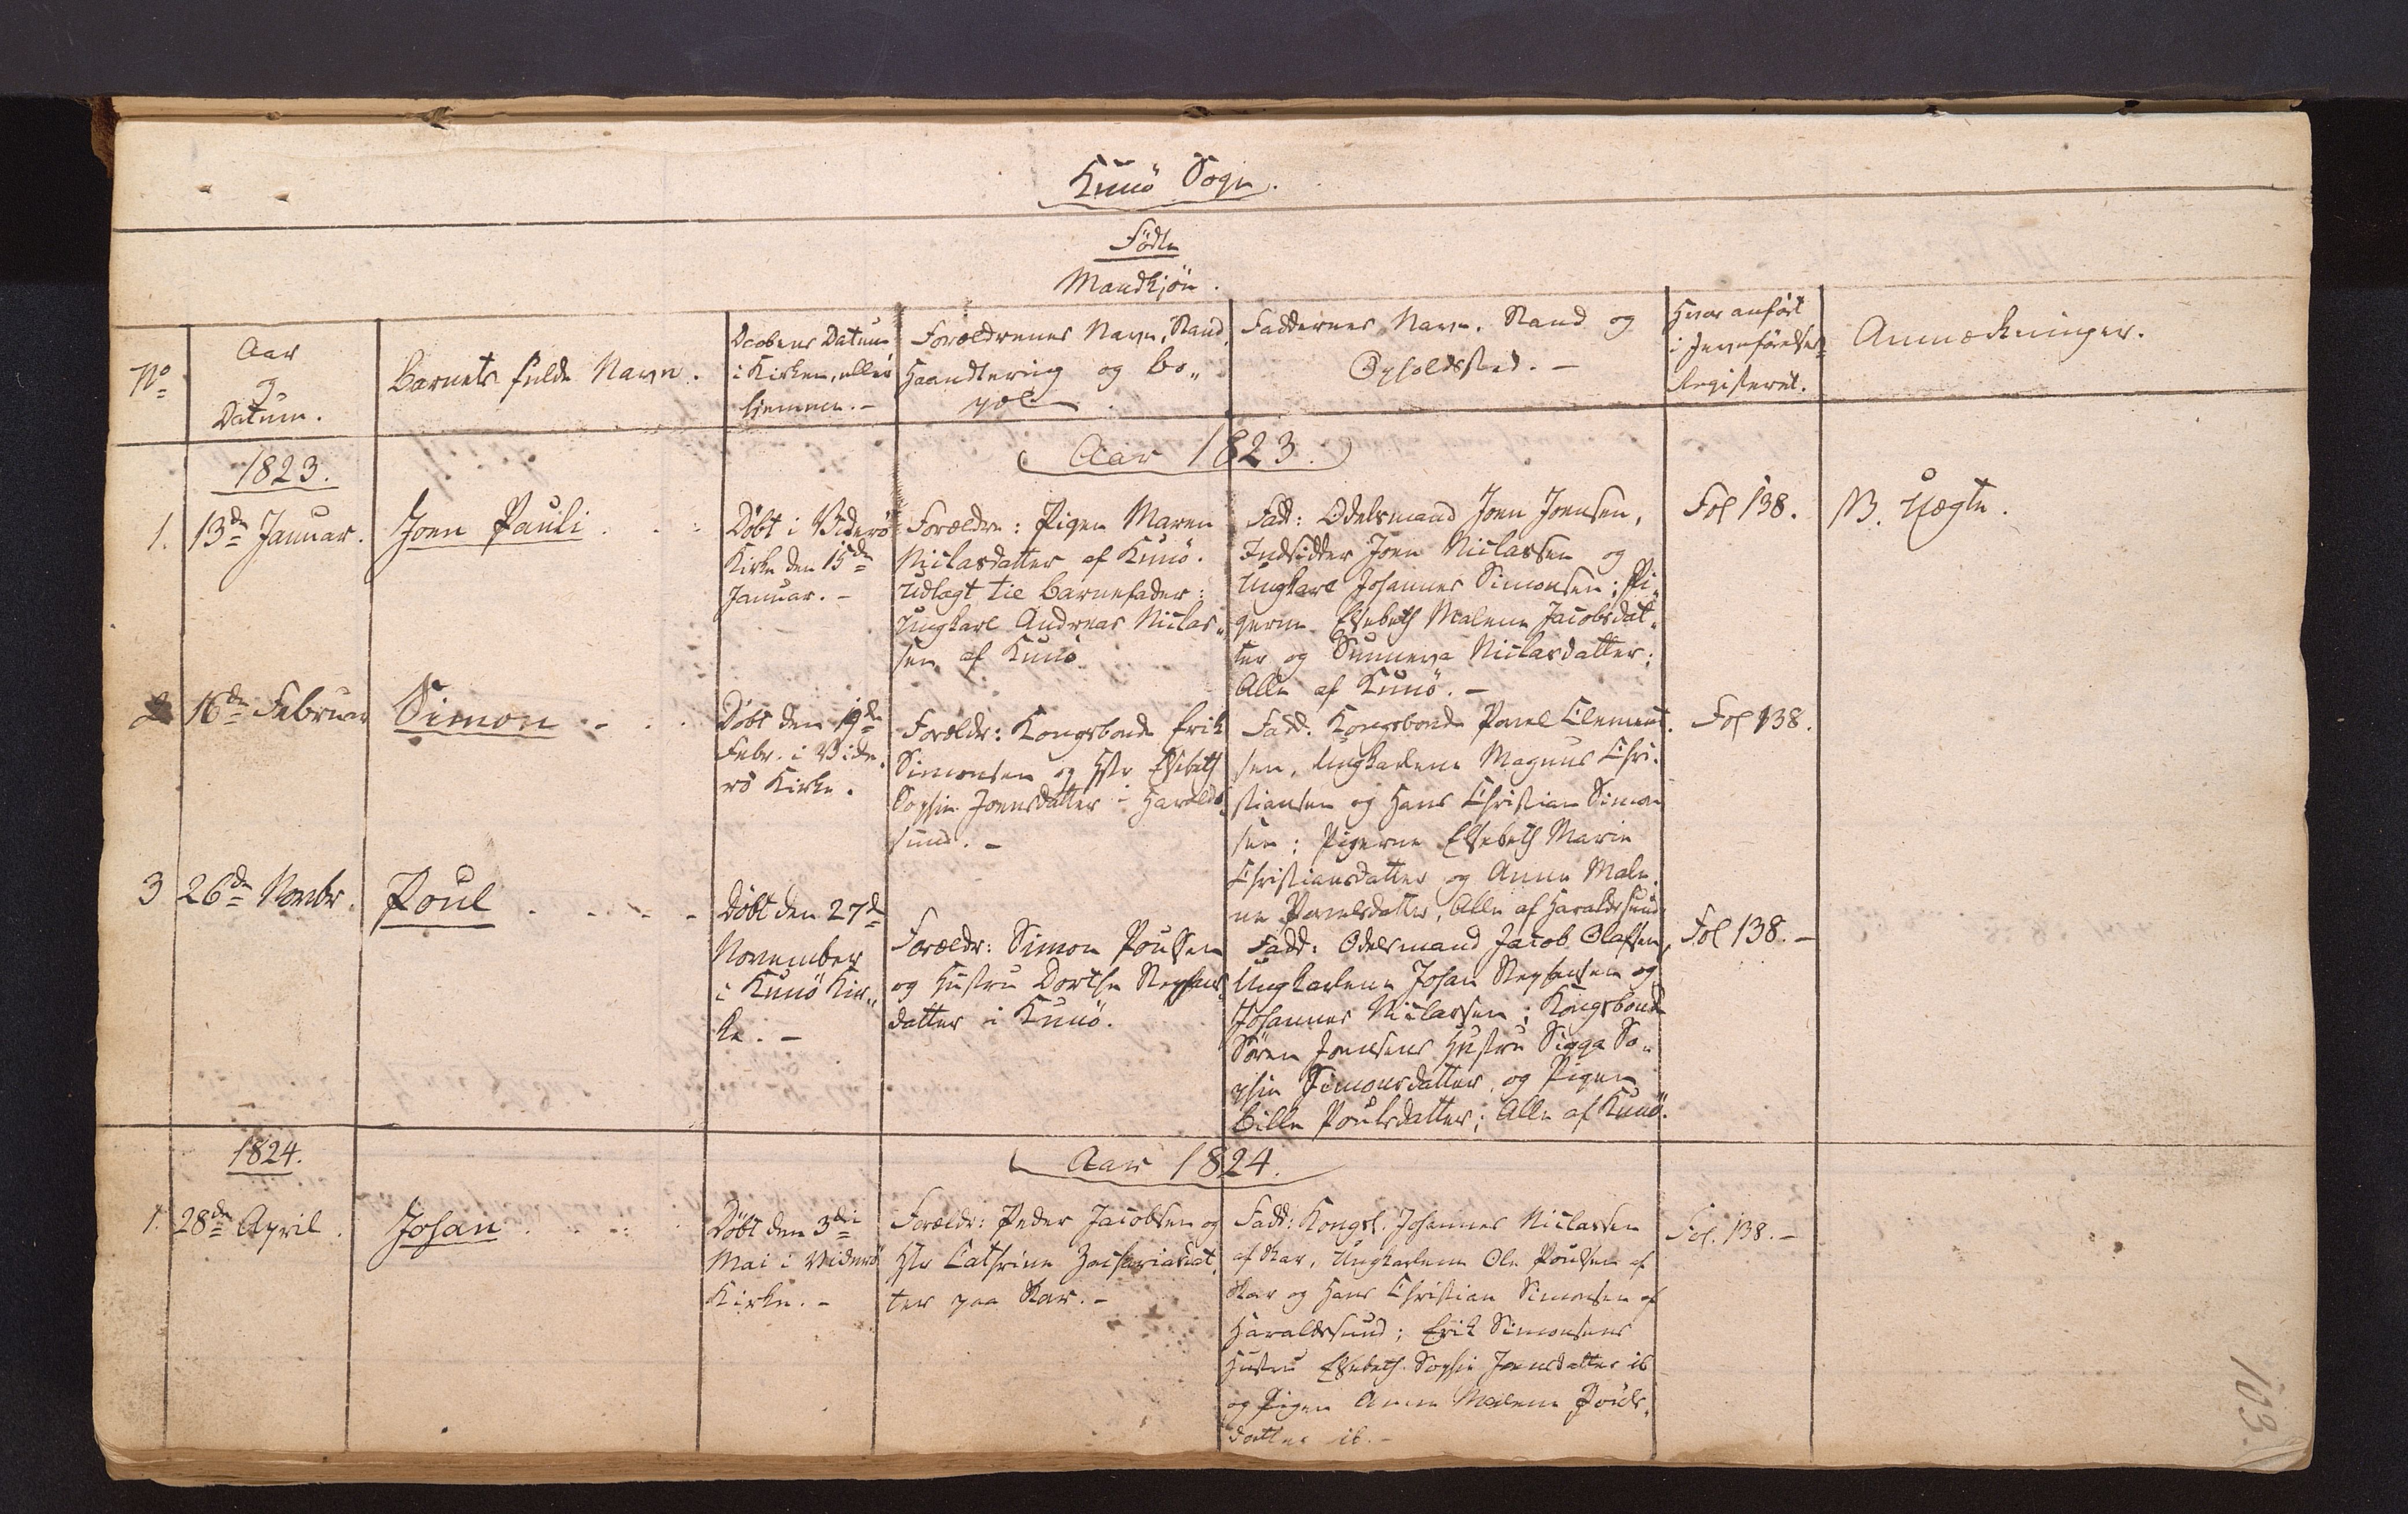 Kunö Sogn.
Födte
Mandkjön.
No
Aar
og
Datum.
Barnets fulde Navn.
Daabens Datum
i Kirken, eller
hjemmen.-
Forældrenes Navn, Stand,
Haandtering og Bo„
pæl.
Faddernes Navn, Stand og
Opholdssted. -
Hvor anfört
i Jevnförelses-
Registeret.
Anmærkninger.
1823.
Aar 1823.
1.
13de Januar.
Joen Pauli . . .
Döbt i Viderö
Kirke den 15de
Januar. -
Forældre: Pigen Maren
Niclasdatter af Kunö.
Udlagt til Barnefader:
Ungkarl Andreas Niclas„
sen af Kunö
Fadd: Odelsmand Joen Joensen,
Indsidder Joen Niclassen og
Ungkarl Johannes Simonsen; Pi„
gerne Elsebeth Malene Jacobsdat„
ter og Sunneva Niclasdatter;
Alle af Kunö. -
Fol 138.
NB. Uægte.
2
16de Februar
Simon - . .
Döbt den 19de
Febr. i Vide„
rö Kirke.
Forældr: Kongsbonde Erik
Simonsen og Hstr Elsebeth
Sophie Joensdatter i Haralds„
sund. -
Fadd. Kongsbonde Povel Clement„
sen, Ungkarlene Magnus Chri„
stiansen og Hans Christian Simon
sen; Pigerne Elsebeth Marie
Christiansdatter og Anne Male„
ne Povelsdatter, Alle af Haraldssund
Fol 138.
3
26de Novbr.
Poul . . - . -
Döbt den 27de
November
i Kunö Kir„
ke. -
Forældr: Simon Poulsen
og Hustru Dorthe Stephens„
datter i Kunö.
Fadd: Odelsmand Jacob Olafsen,
Ungkarlene Johan Stephensen og
Johannes Niclassen; Kongsbonde
Sören Joensens Hustru Sigga So„
phie Simonsdatter, og Pigen
Bille Poulsdatter; Alle af Kunö.
Fol 138. -
1824.
Aar 1824.
1.
28de April.
Johan . . . .
Döbt den 3die
Mai i Viderö
Kirke. -
Forældr: Peder Jacobsen og
Hstr Cathrine Zachariasdat„
ter paa Skar. -
Fadd: Kongsb. Johannes Niclassen
af Skar, Ungkarlene Ole Poulsen af
Skar og Hans Christian Simonsen af
Haraldssund; Erik Simonsens
Hustru Elsebeth Sophie Joensdatter ib
og Pigen Anne Malene Pouls„
datter ib. -
Fol. 138. -
103.